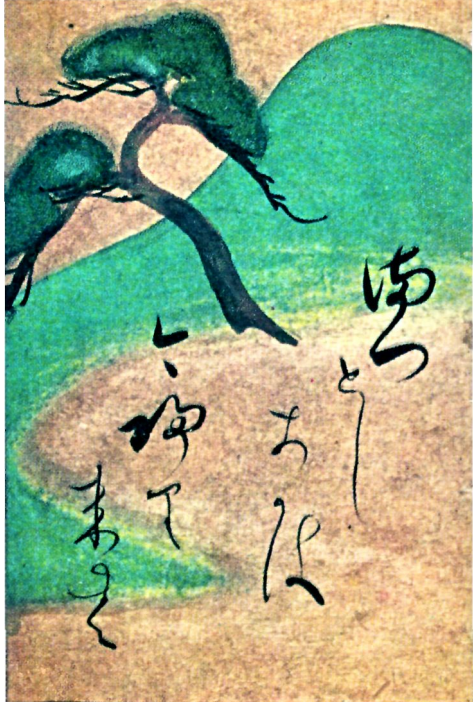 満つとし
きかは
今帰り
来む